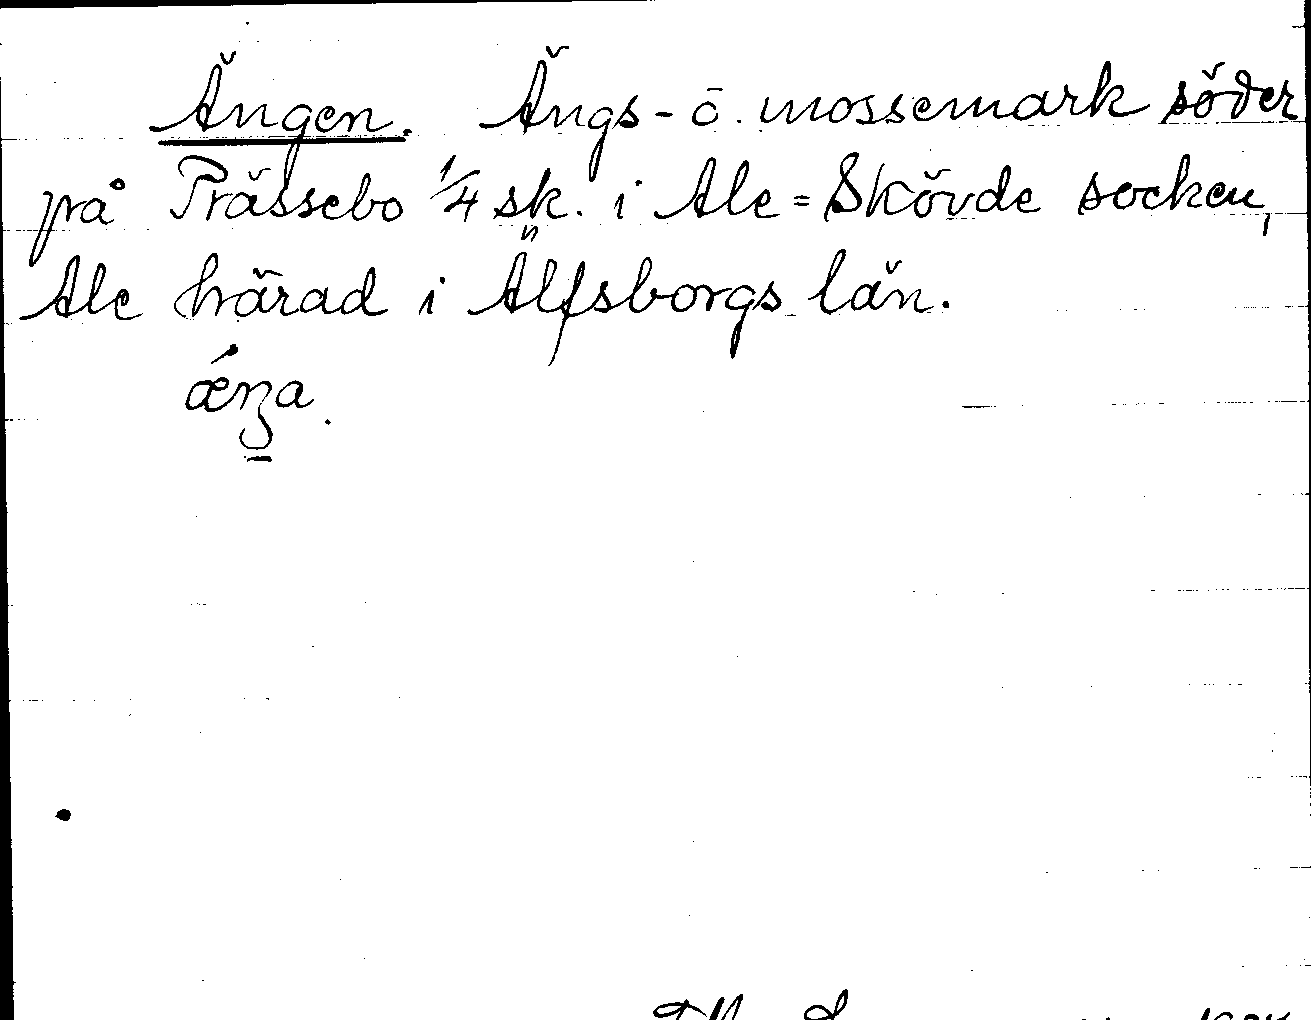 Ängen. Ängs- o. mossemark söder
på Prässebo 1/4 sk. i Ale-Skövde socken,
Ale härad i Älfsborgs län.